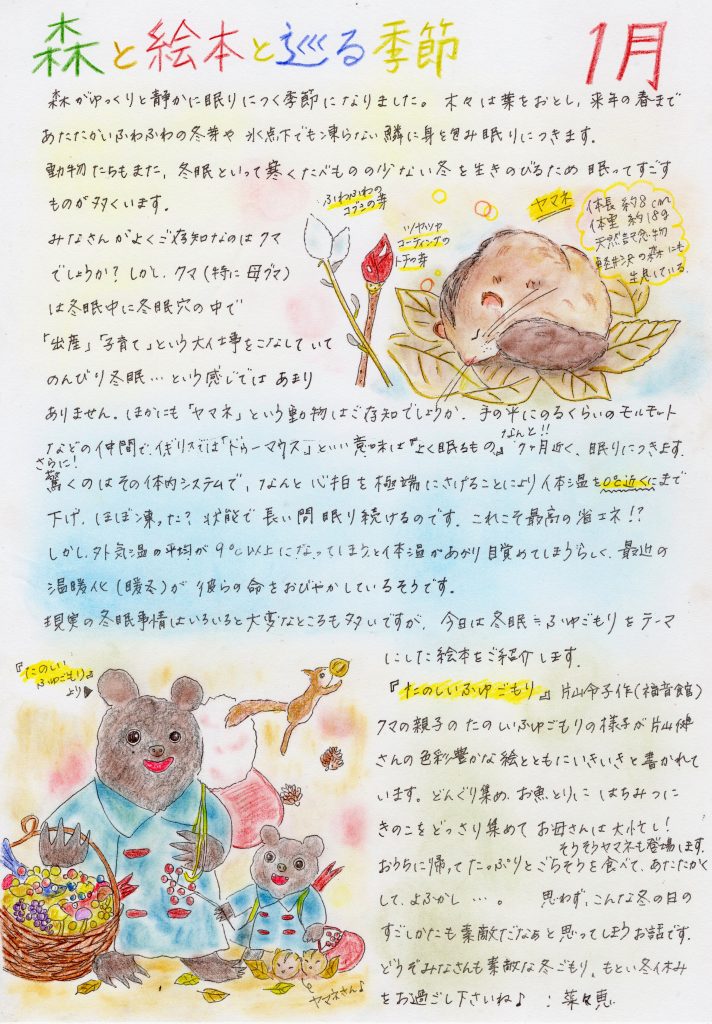 森と絵本と巡る季節
1月
森がゆっくりと静かに眠りにつく季節になりました。木々は葉をおとし、来年の春まで
あたたかいふわふわの冬芽や氷点下でも凍らない鱗に身を包み眠りにつきます。
動物たちもまた、冬眠といって寒くたべものの少ない冬を生きのびるため眠ってすごす
ものが多くいます。
みなさんがよくご存知なのはクマ
でしょうか？しかし、クマ(特に母グマ)
は冬眠中に冬眠穴の中で
「出産」「子育て」という大仕事をこなしていて
のんびり冬眠…という感じではあまり
ふわふわの
コブシの芽
ツヤツヤ
コーティングの
トチの芽
ヤマネ
体長 約8cm
体重 約18g
天然記念物
軽井沢の森にも
生息している。
ありません。ほかにも「ヤマネ」という動物はご存知でしょうか。手の平にのるくらいのモルモット
などの仲間で、イギリスでは「ドゥーマウス」といい意味は『よく眠るもの』なんと!!7ヶ月近く、眠りにつきます。
さらに！
驚くのはその体的システムで、なんと心拍を極端にさげることにより体温を0℃近くにまで
下げ、ほぼ凍った？状態で長い間眠り続けるのです。これこそ最高の省エネ!?
しかし、外気温の平均が9℃以上になってしまうと体温があがり目覚めてしまうらしく、最近の
温暖化(暖冬)が彼らの命をおびやかしているそうです。
現実の冬眠事情はいろいろと大変なところも多いですが、今日は冬眠＝ふゆごもりをテーマ
にした絵本をご紹介します。
『たのしい
ふゆごもり』
より
『たのしいふゆごもり』片山令子作(福音館)
クマの親子のたのしいふゆごもりの様子が片山健
さんの色彩豊かな絵とともにいきいきと書かれて
います。どんぐり集め、お魚とりに はちみつに
きのこをどっさり集めて お母さんは大忙し！
そうそうヤマネも登場します。
おうちに帰ってたっぷりとごちそうを食べて、あたたかく
して、よふかし…。 思わず、こんな冬の日の
すごしかたも素敵だなぁと思ってしまうお話です。
どうぞみなさんも素敵な冬ごもり、もとい冬休み
をお過ごし下さいね♪ ：菜々恵
ヤマネさん♪